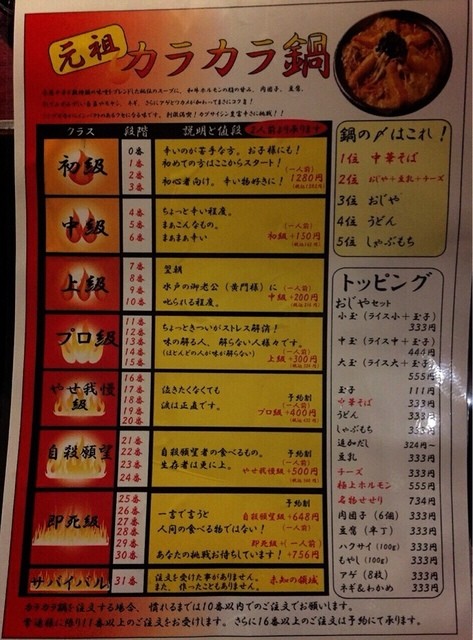 元祖 カラカラ鍋
クラス 段階 説明と値段 2人前より承ります
初級
0番 辛いのが苦手な方。お子様にも!
1番 初めての方はここからスタート!
2番 (一人前)
3番 初心者向け。辛い物好きに! 1280円
中級
4番 ちょっと辛い程度。
5番 まぁこんなもの。 (一人前)
6番 まぁまぁ辛い 初級+150円
上級
7番 翌朝
8番 水戸の御老公(黄門様)に (一人前)
9番 叱られる程度。 中級+200円
10番
プロ級
11番 ちょっときついがストレス解消!
12番 味の解る人、解らない人様々です。
13番 (ほとんどの人が味が解らない) (一人前)
14番 上級+300円
15番
やせ我慢級
16番 泣きたくなくても 予約制
17番 涙は正直です。 (一人前)
18番 プロ級+400円
19番
20番
自殺願望
21番 自殺願望者の食べるもの。 予約制
22番 生存者は更に上。 (一人前)
23番 やせ我慢級+500円
24番
即死級
25番 予約制
26番 一言で言うと 自殺願望級+648円
27番 人間の食べる物ではない! (一人前)
28番
29番 即死級+(一人前)
30番 あなたの挑戦お待ちしています! +756円
サバイバル
31番 注文を受けた事がありません。 未知の領域
また、作ったこともありません。
鍋の〆はこれ!
1位 中華そば
2位 おじや+豆乳+チーズ
3位 おじや
4位 うどん
5位 しゃぶもち
トッピング
おじやセット
小玉(ライス小+玉子)
333円
中玉(ライス中+玉子)
444円
大玉(ライス大+玉子)
555円
玉子 111円
中華そば 333円
うどん 333円
しゃぶもち 333円
追加だし 324円~
豆乳 333円
チーズ 333円
極上ホルモン 555円
名物せせり 734円
肉団子(6個) 333円
豆腐(半丁) 333円
ハクサイ(100g) 333円
もやし(100g) 333円
アゲ(8枚) 333円
ネギ&わかめ 333円
カラカラ鍋を注文する場合、慣れるまでは10番以内でのご注文でお願いします。
常連様に限り11番以上のご注文をお受けします。さらに16番以上のご注文は予約にて承ります。